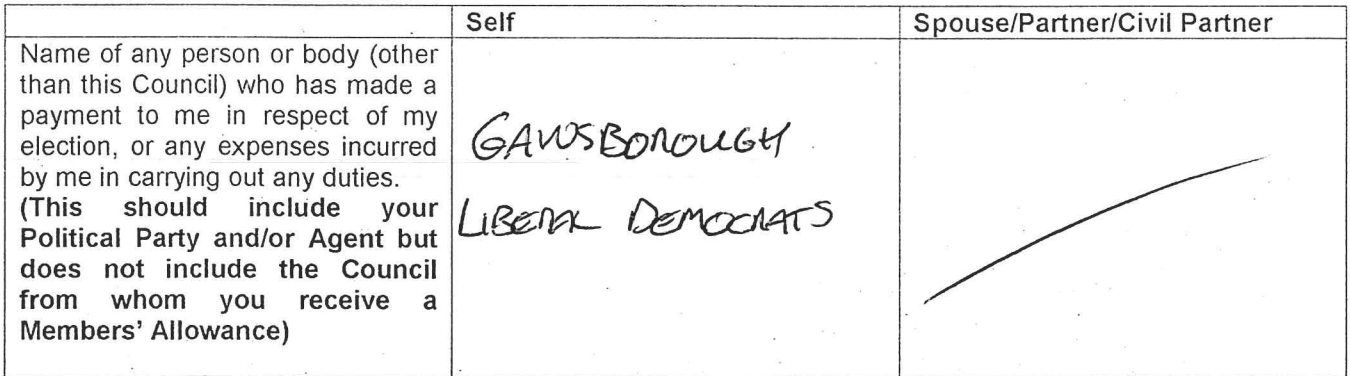 Self
Spouse/Partner/Civil Partner
Name of any person or body (other
than this Council) who has made a
payment to me in respect of my
election, or any expenses incurred
by me in carrying out any duties.
(This should include your
Political Party and/or Agent but
does not include the Council
from whom you receive a
Members' Allowance)
GAINSBOROUGH
LIBERAL DEMOCRATS